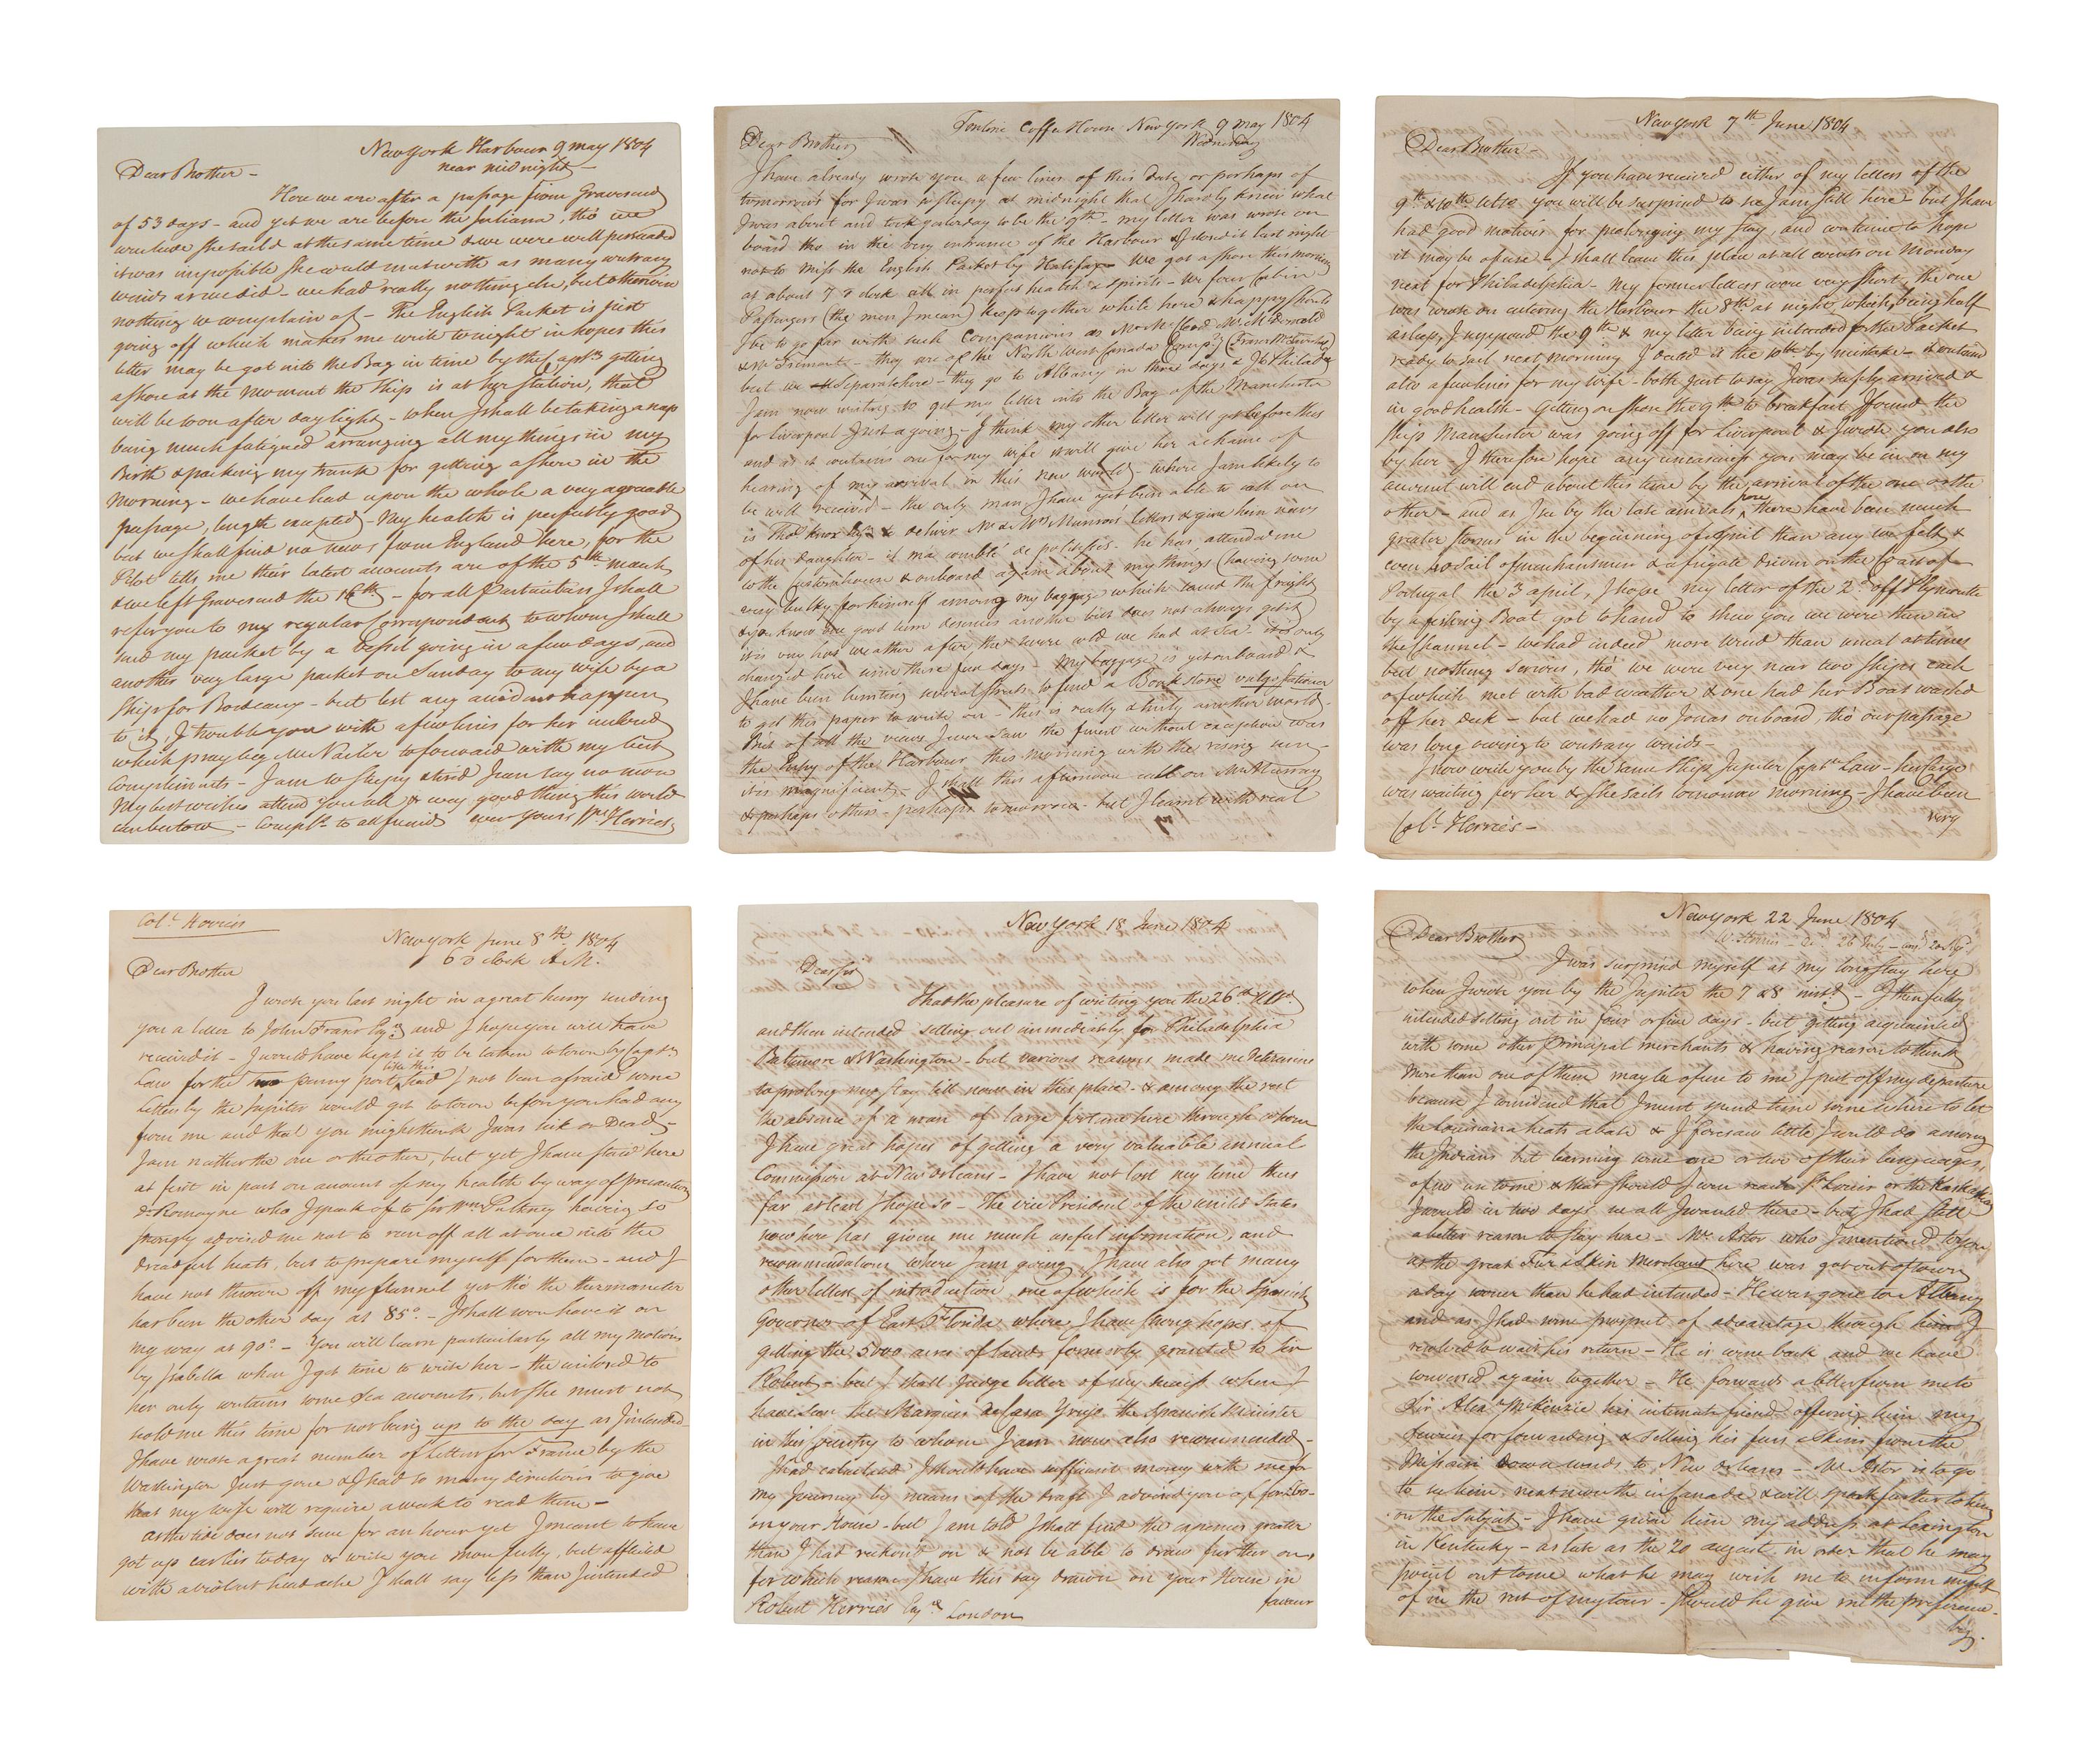 New York Harbour 9 may 1804
near midnight –
Dear Brother –
Here we are after a passage from Gravesend
of 53 days – and yet we are before the Juliana, tho' we
conclude she sail'd at the same time & we were well persuaded
it was impossible she could meet with as many contrary
winds as we did – we had really nothing else, but otherwise
nothing to complain of – The English Packet is just
going off which makes me write tonight in hopes this
letter may be got into the Bag in time by the Captn getting
ashore at the moment the ship is at her station, that
will be soon after day light – when I shall be taking a nap
being much fatigued arranging all my things in my
Birth & packing my trunk for getting ashore in the
Morning – we have had upon the whole a very agreeable
passage, length excepted – My health is perfectly good
but we shall find no news from England here, for the
Pilot tells me their latest accounts are of the 5th march
& we left Gravesend the 16th – for all Particulars I shall
refer you to my regular Correspondent to whom I shall
send my packet by a Vessel going in a few days, and
another very large packet on Sunday to my wife by a
ship for Bordeaux – but lest any accident happen
to it, I trouble you with a few lines for her inclosed
which pray beg Mr to forward with my best
Compliments – I am so sleepy & tired I can say no more
My best wishes attend you all & every good thing this world
can bestow – Complts to all friends ever yours Herries
Tontine Coffee House New York 9 may 1804
Wednesday
Dear Brother
I have already wrote you a few lines of this date or perhaps of
tomorrow's for I was so sleepy at midnight that I hardly knew what
I was about and took yesterday to be the 9th – my letter was wrote on
board tho' in the very entrance of the Harbour & I closed it last night
not to miss the English Packet by Halifax – We got ashore this morning
at about 7 o'clock all in perfect health & spirits – We four Cabin
Passengers (the men I mean) keep together while here & happy should
I be to go far with such Companions as Mr McLeod Mr McDonald
& Mr – they are of the North West Canada Compy
but we separate here – they go to Albany in three days & I to Philada
I am now writing to get my letter into the Bag of the Manchester
for Liverpool just a going – I think my other letter will get before this
and as it contains one for my wife will give her a chance of
hearing of my arrival in this new world – where I am likely to
be well received – the only man I have yet been able to call on
is Thos Knox to deliver Mr & Mrs Munro's letters & give him news
of her Daughter – il m'a comblé de politesses – he has attended me
to the Customhouse & onboard again about my things (having some
very bulky for himself among my baggage which saved the freight
& you know one good turn deserves another but does not always get it
it is very hot weather after the severe cold we had at Sea – it is only
changed here since these few days – My baggage is yet on board &
I have been hunting several streets to find a Book store
to get this paper to write on – this is really & truly another world –
But of all the views I ever saw the finest without exception was
the Entry of the Harbour this morning with the rising sun –
it is magnificent – I shall this afternoon call on Mr Murray
& perhaps others – perhaps tomorrow – but I learnt with real
New York 7th June 1804
Dear Brother –
If you have received either of my letters of the
9th & 10th ulto you will be surprised to see I am still here – but I have
had good motives for prolonging my stay, and continue to hope
it may be of use – I shall leave this place at all events on Monday
next for Philadelphia – My former letters were very short, the one
was wrote on entering the Harbour the 8th at night, which being half
asleep, I supposed the 9th & my letter being intended for the Packet
ready to sail next morning I dated it the 10th by mistake – it contained
also a few lines for my wife – both just to say I was safely arrived &
in good health – Getting on shore the 9th to breakfast I found the
ship Manchester was going off for Liverpool & I wrote you also
by her – I therefore hope any uneasiness you may be in on my
account will end about this time by the arrival of the one or the
other – and as I see by the late arrivals here there have been much
greater storms in the beginning of april than any we felt &
even 40 sail of merchantmen & a frigate driven on the Coast of
Portugal the 3 april, I hope my letter of the 2d off Plymouth
by a fishing Boat got to hand to shew you we were then in
the Channel – we had indeed more wind than usual at times
but nothing serious, tho' we were very near two ships each
of which met with bad weather & one had her Boat washed
off her deck – but we had no Jonas onboard, tho' our passage
was long owing to contrary winds –
I now write you by the same ship Jupiter Captn Law – her Cargo
was waiting for her & she sails tomorrow morning – I have been
very
Col. Herries –
Col. Herries
New York June 8th 1804
6 o'clock A.M.
Dear Brother
I wrote you last night in a great hurry sending
you a letter to John Esqr and I hope you will have
received it – I would have kept it to be taken to town by Captn
Law for the penny post like this, had I not been afraid some
Letters by the Jupiter would get to town before you had any
from me and that you might think I was sick or Dead –
I am neither the one or the other, but yet I have staid here
at first in part on account of my health by way of precaution
Dr Romayne who I speak of to Sir Wm Pulteney having so
strongly advised me not to run off all at once into the
dreadful heats, but to prepare myself for them – and I
have not thrown off my flannel yet tho' the thermometer
has been the other day at 85° – I shall soon have it on
my way at 90° – You will learn particularly all my motions
by Isabella when I get time to write her – the inclosed to
her only contains some Sea accounts, but she must not
scold me this time for not being up to the day as I intended
I have wrote a great number of Letters for France by the
Washington just gone & I had so many directions to give
that my wife will require a week to read them –
as the tide does not serve for an hour yet I meant to have
got up earlier today & write you more fully, but afflicted
with a violent headache I shall say less than I intended
New York 18 June 1804
Dear Sir
I had the pleasure of writing you the 26th Ulto
and then intended setting out immediately for Philadelphia
Baltimore & Washington – but various reasons made me determine
to prolong my stay till now in this place – & among the rest
the absence of a man of large fortune here through whom
I have great hopes of getting a very valuable annual
Commission at New Orleans – I have not lost my time thus
far at least I hope so – The vice President of the United States
now here has given me much useful information, and
recommendations where I am going. I have also got many
other letters of introduction one of which is for the Spanish
Governor of East Florida where I have strong hopes of
getting the 5000 acres of lands formerly granted to Sir
Robert – but I shall judge better of success when I
have seen the Marquis de Casa Yrujo the Spanish Minister
in this Country to whom I am now also recommended –
I had calculated I should have sufficient money with me for
my Journey by means of the draft I advised you of for £60 –
on your House – but I am told I shall find the expences greater
than I had reckon'd on & not be able to draw further on,
for which reason I have this day drawn on your House in
favour
Robert Herries Esqr London
New York 22 June 1804
Dear Brother
I was surprised myself at my long stay here
when I wrote you by the Jupiter the 7 & 8 inst. – I then fully
intended setting out in four or five days – but getting acquainted
with some other principal merchants & having reason to think
more than one of them may be of use to me I put off my departure
because I considered that I must spend time some where to let
the Louisiana heats abate & I foresaw little I could do among
the Indians but learning some one or two of their languages,
of no use to me & that should I even reach St Louis or the Kaskaskias
I would in two days see all I wanted there – but I had still
a better reason to stay here – Mr Astor who I mentioned to you
as the great Fur & Skin Merchant here was got out of town
a day sooner than he had intended – He was gone to Albany
and as I had some prospect of advantage through him I
resolved to wait his return – He is come back and we have
conversed again together – He forwards a letter from me to
Sir Alexr McKenzie his intimate friend offering him my
services for forwarding & selling his furs & skins from the
Missouri downwards to New Orleans – Mr Astor is to go
to see him next month in Canada & will speak further to him
on the Subject – I have given him my address at Lexington
in Kentucky – as late as the 20 august in order that he may
point out to me what he may wish me to inform myself
of in the rest of my tour – Should he give me the preference –